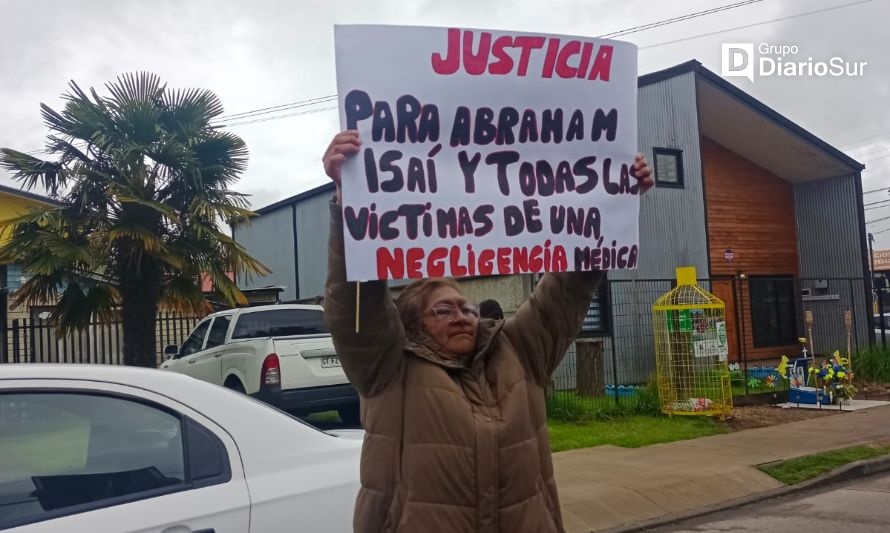 JUSTICIA
PARA ABRAHAM
ISAÍ Y TODAS LAS
VICTIMAS DE UNA
NEGLIGENCIA MÉDICA
Grupo
DiarioSur